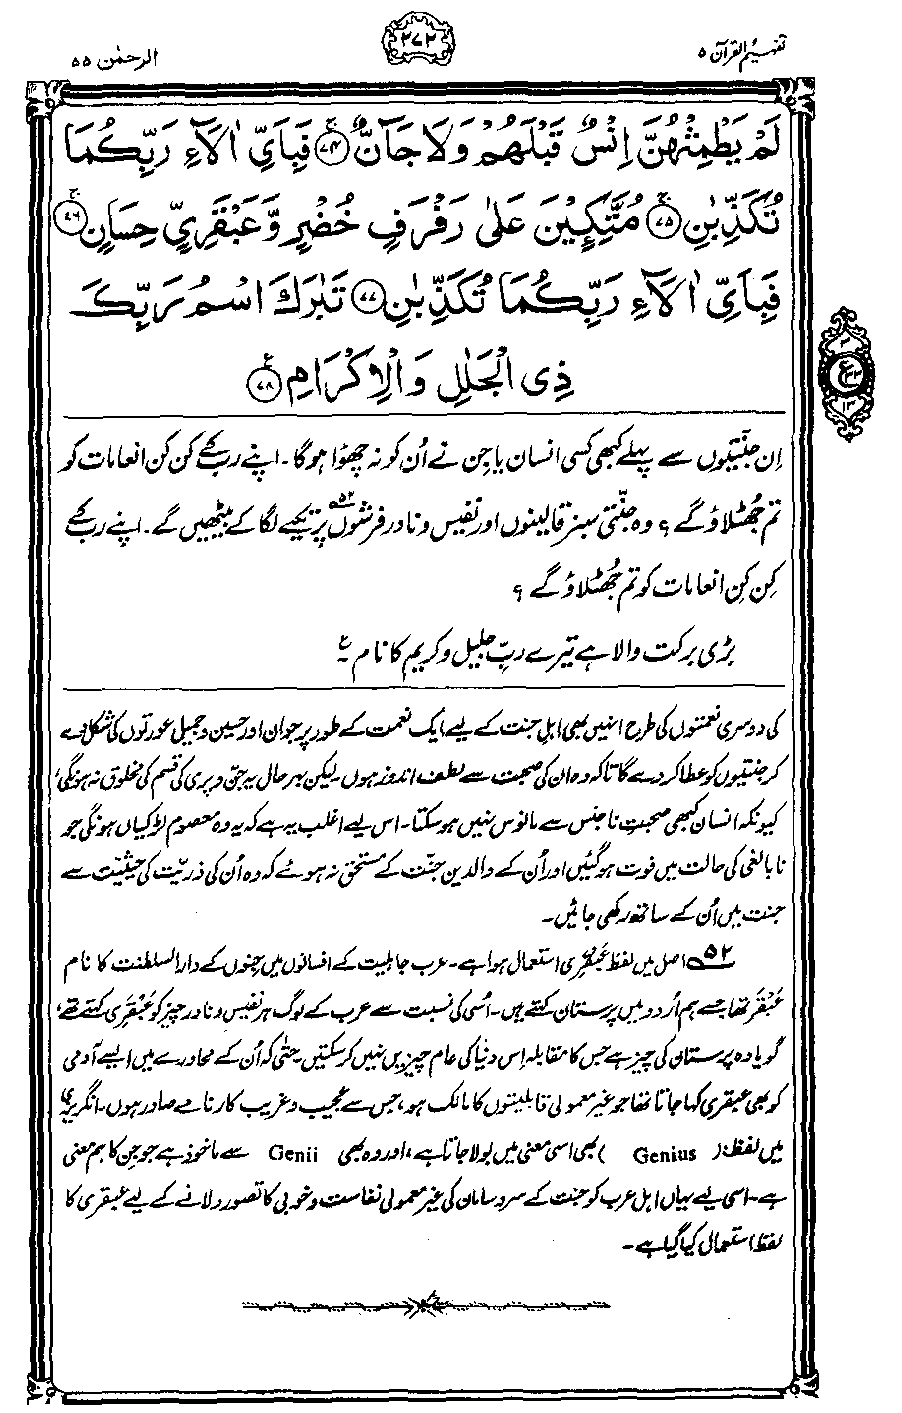 تفہیم القرآن ۵
۲۷۲
الرحمٰن ۵۵
لَمْ يَطْمِثْهُنَّ اِنْسٌ قَبْلَهُمْ وَلَا جَآنٌّ ۚ﴿۷۴﴾ فَبِاَيِّ اٰلَآءِ رَبِّكُمَا
تُكَذِّبٰنِ ۚ﴿۷۵﴾ مُتَّكِـِٕيْنَ عَلٰى رَفْرَفٍ خُضْرٍ وَّعَبْقَرِيٍّ حِسَانٍ ۚ﴿۷۶﴾
فَبِاَيِّ اٰلَآءِ رَبِّكُمَا تُكَذِّبٰنِ ﴿۷۷﴾ تَبٰرَكَ اسْمُ رَبِّكَ
ذِى الْجَلٰلِ وَالْاِكْرَامِ ﴿۷۸﴾ ع
ع
۱۳
اِن جنّتیوں سے پہلے کبھی کسی انسان یا جِن نے اُن کو نہ چھؤا ہوگا۔ اپنے رب کے کن کن انعامات کو
تم جھُٹلاؤ گے؟ وہ جنّتی سبز قالینوں اور نفیس و نادر فرشوں۵۲ پر تکیے لگا کے بیٹھیں گے۔ اپنے رب کے
کِن کِن انعامات کو تم جھُٹلاؤ گے؟
بڑی برکت والا ہے تیرے ربِّ جلیل و کریم کا نام ۔ ع
کی دوسری نعمتوں کی طرح انہیں بھی اہلِ جنت کے لیے ایک نعمت کے طور پر جوان اور حسین و جمیل عورتوں کی شکل دے
کر جنتیوں کو عطا کر دے گا تاکہ وہ ان کی صحبت سے لطف اندوز ہوں۔ لیکن بہرحال یہ جِنّ و پری کی قسم کی مخلوق نہ ہونگی،
کیونکہ انسان کبھی صحبتِ ناجنس سے مانوس نہیں ہو سکتا۔ اس لیے اغلب یہ ہے کہ یہ وہ معصوم لڑکیاں ہونگی جو
نابالغی کی حالت میں فوت ہو گئیں اور اُن کے والدین جنّت کے مستحق نہ ہوئے کہ وہ اُن کی ذریّت کی حیثیت سے
جنت میں اُن کے ساتھ رکھی جائیں۔
۵۲ اصل میں لفظ عَبْقَرِی استعمال ہوا ہے۔ عرب جاہلیت کے افسانوں میں جِنوں کے دارالسلطنت کا نام
عَبْقَر تھا جسے ہم اُردو میں پرستان کہتے ہیں۔ اُسی کی نسبت سے عرب کے لوگ ہر نفیس و نادر چیز کو عَبْقَری کہتے تھے،
گویا وہ پرستان کی چیز ہے جس کا مقابلہ اِس دنیا کی عام چیزیں نہیں کر سکتیں۔ حتٰی کہ اُن کے محاورے میں ایسے آدمی
کو بھی عبقری کہا جاتا تھا جو غیر معمولی قابلیتوں کا مالک ہو، جس سے عجیب و غریب کارنامے صادر ہوں۔ انگریزی
میں لفظ: ( Genius ) بھی اسی معنی میں بولا جاتا ہے، اور وہ بھی Genii سے ماخوذ ہے جو جِن کا ہم معنی
ہے۔ اسی لیے یہاں اہل عرب کو جنت کے سروسامان کی غیر معمولی نفاست و خوبی کا تصور دلانے کے لیے عبقری کا
لفظ استعمال کیا گیا ہے۔